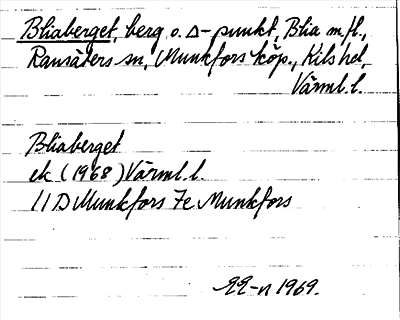 Bliaberget, berg o. ∆-punkt, Blia m.fl.,
Ransäters sn, Munkfors köp., Kils hd,
Värml. l.
Bliaberget
ek (1968) Värml. l.
11D Munkfors 7e Munkfors
-n 1969.